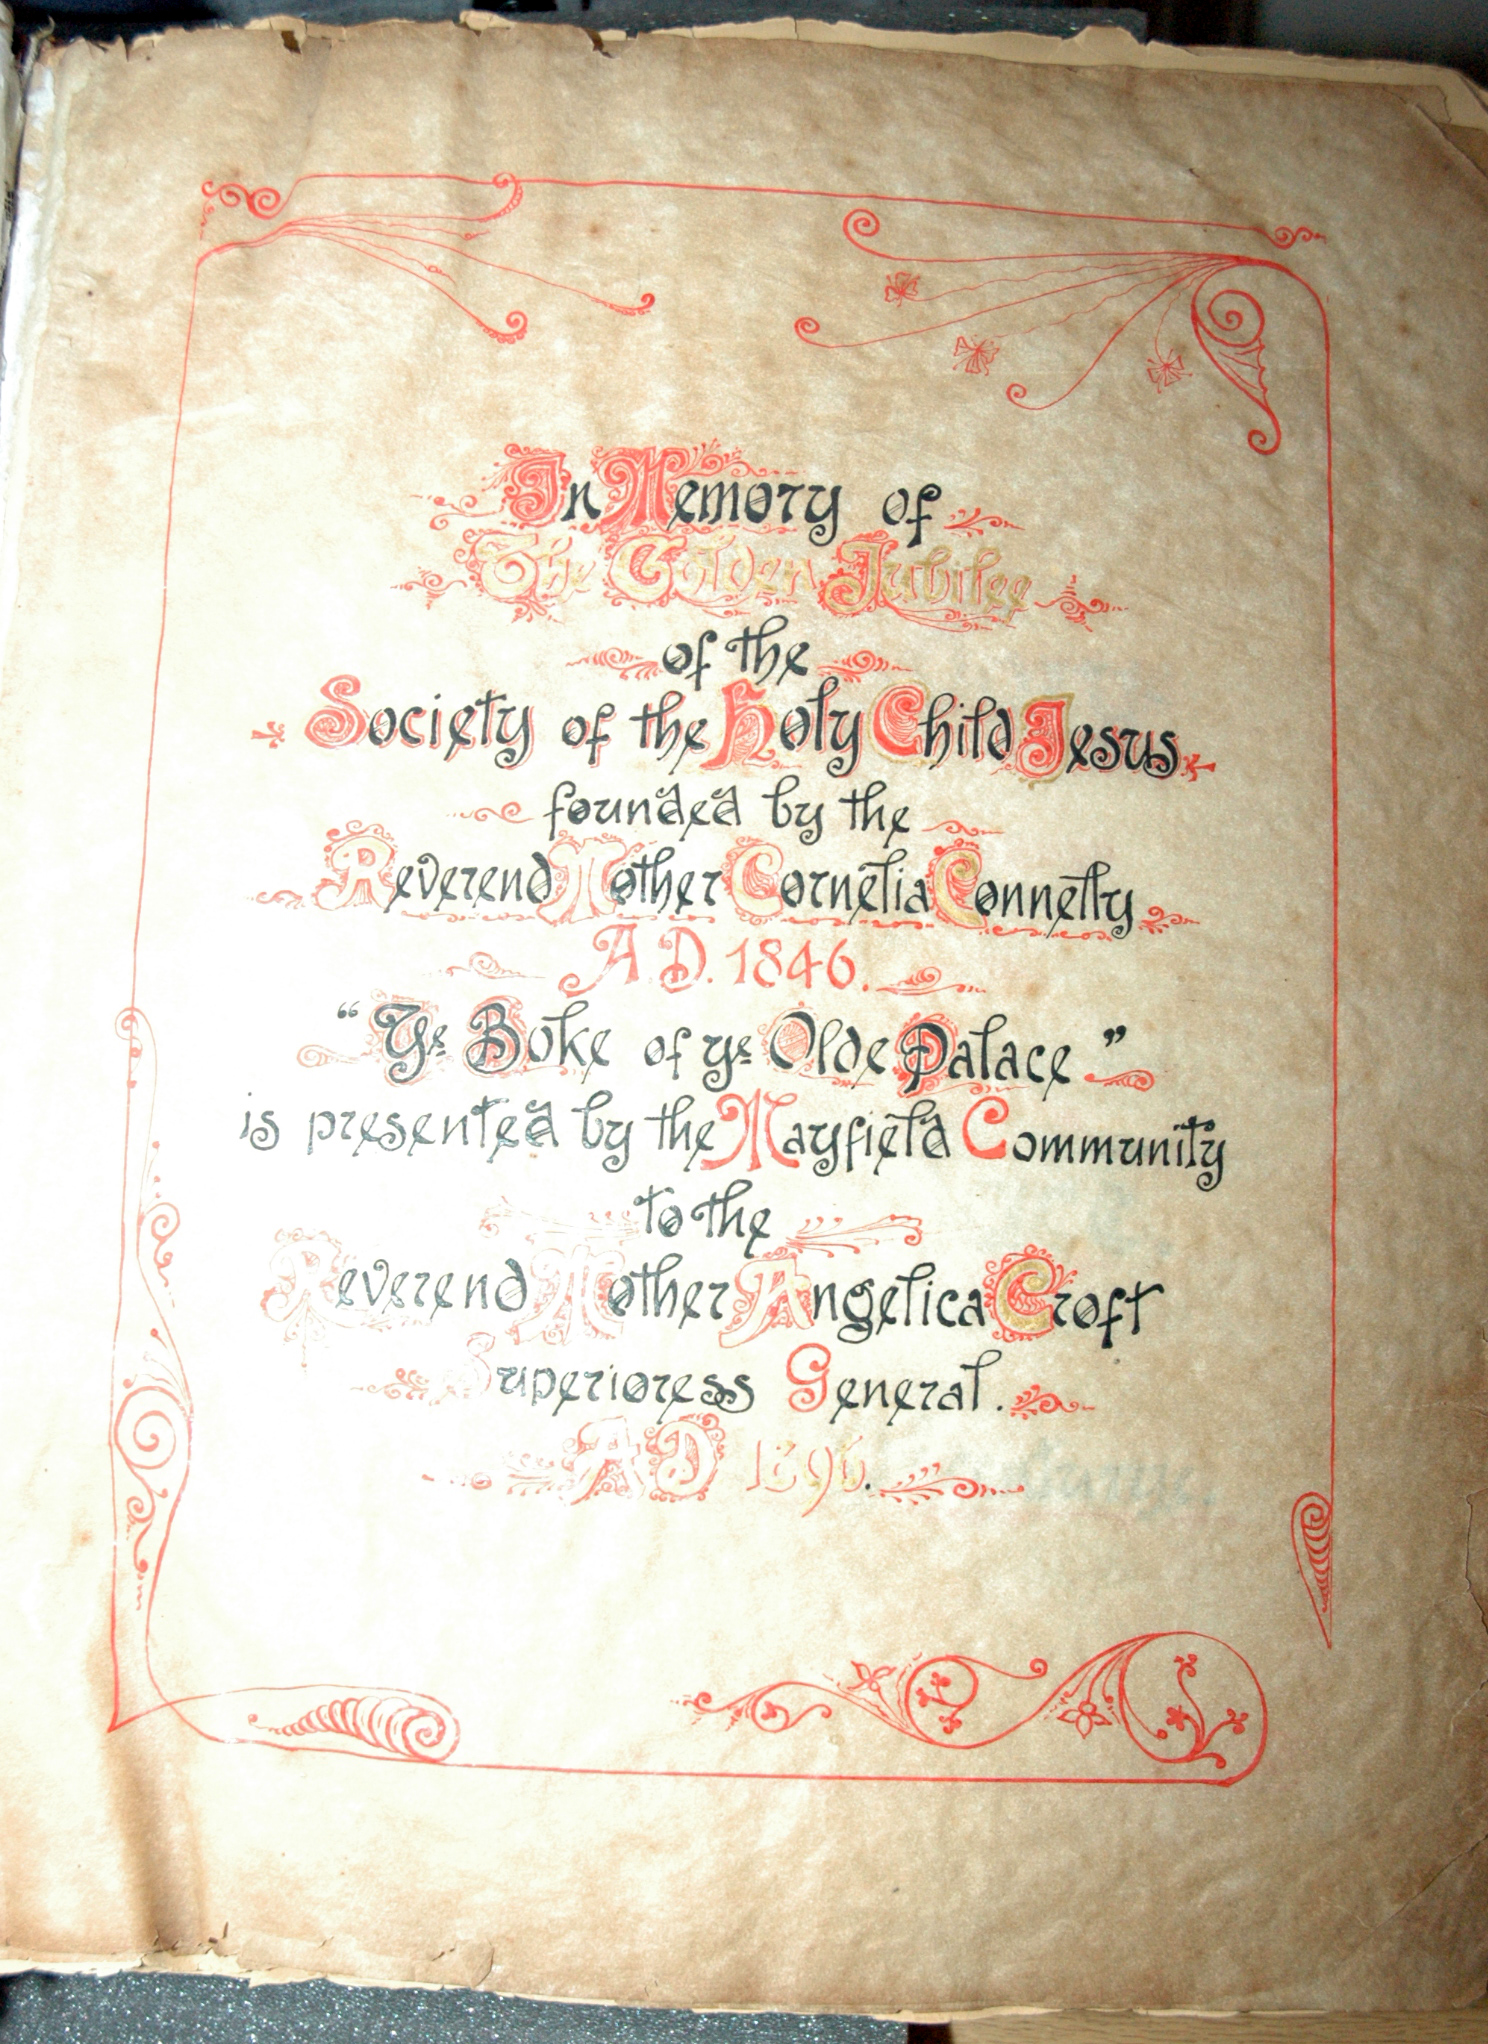 In Memory of
The Golden Jubilee
of the
Society of the Holy Child Jesus.
founded by the
Reverend Mother Cornelia Connelly
A.D. 1846.
“Ye Boke of ye Olde Palace”
is presented by the Mayfield Community
to the
Reverend Mother Angelica Croft
Superioress General.
AD 1896.